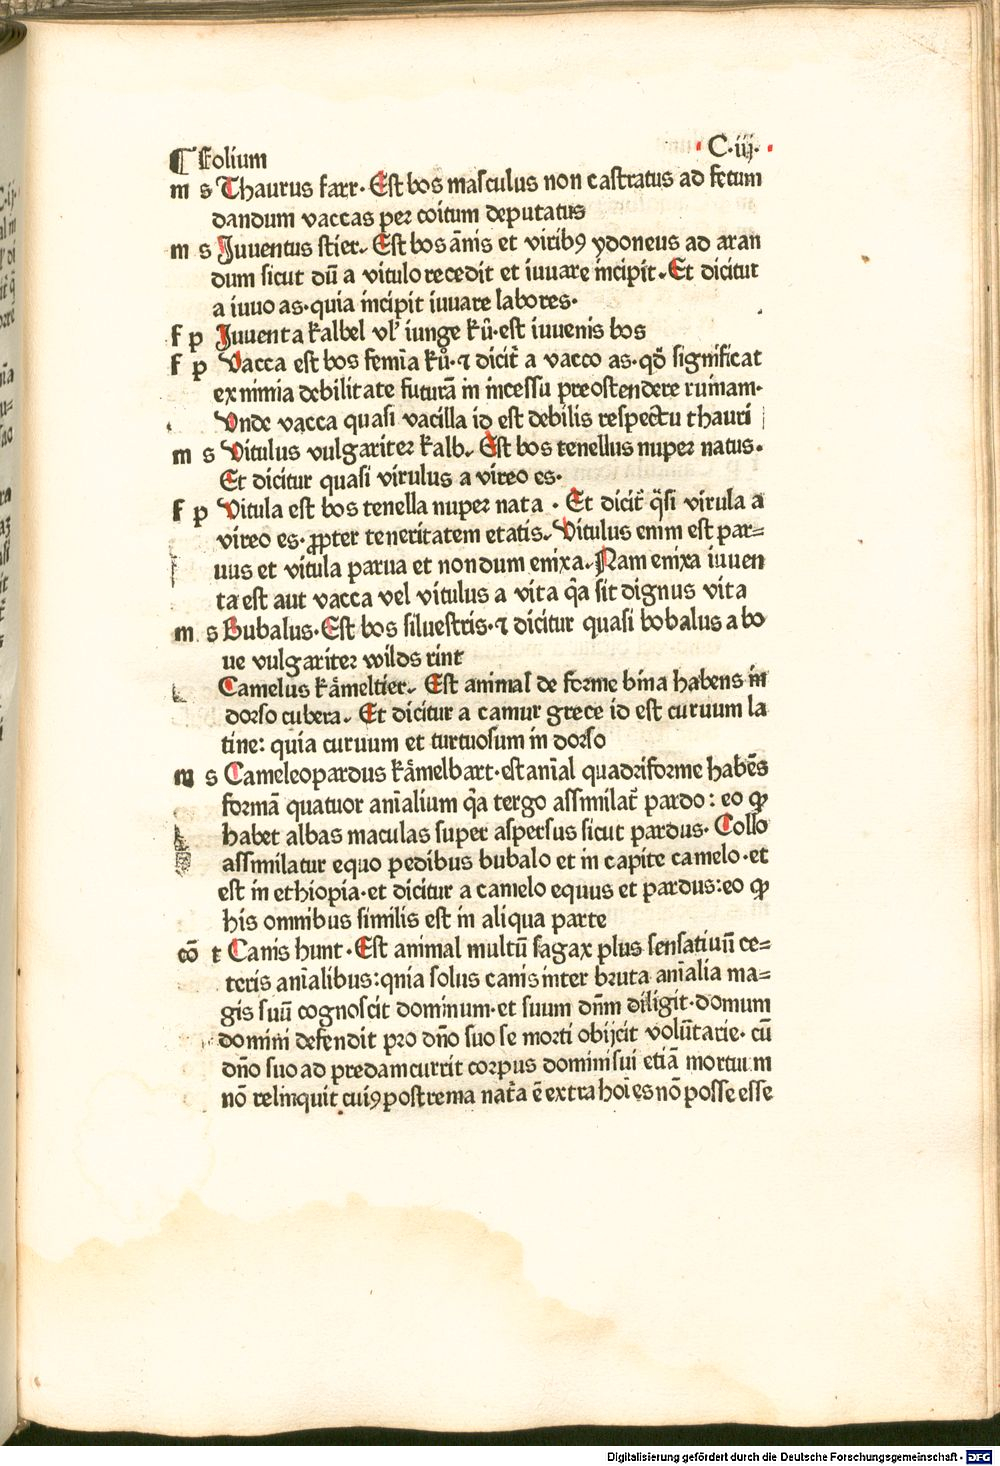 ¶ Folium C·iij·
m s Thaurus farr· Est bos masculus non castratus ad fetum
dandum vaccas per coitum deputatus
m s Juuentus stier· Est bos ānis et virib9 ydoneus ad aran
dum sicut dū a vitulo recedit et iuuare incipit· Et dicitur
a iuuo as·quia incipit iuuare labores·
f p Juuenta kalbel vl' iunge ků·est iuuenis bos
f p Vacca est bos femīa ků·⁊ dicit̄ a vacco as·qđ significat
ex nimia debilitate futurā in incessu preostendere ruinam·
Vnde vacca quasi vacilla id est debilis respectu thauri
m s Vitulus vulgariter kalb· Est bos tenellus nuper natus·
Et dicitur quasi virulus a vireo es·
f p Vitula est bos tenella nuper nata · Et dicit̄ q̄si virula a
vireo es· ꝓpter teneritatem etatis· Vitulus enim est par=
uus et vitula parua et nondum enixa· Nam enixa iuuen
ta est aut vacca vel vitulus a vita q̄a sit dignus vita
m s Bubalus· Est bos siluestris·⁊ dicitur quasi bobalus a bo
ue vulgariter wilds rint
Camelus kåmeltier· Est animal de forme bina habens in
dorso cubera· Et dicitur a camur grece id est curuum la
tine: quia curuum et turtuosum in dorso
m s Cameleopardus kåmelbart·est anīal quadriforme habēs
formā quatuor anīalium q̄a tergo assimilat̄ pardo: eo ꝙ
habet albas maculas super aspersus sicut pardus· Collo
assimilatur equo pedibus bubalo et in capite camelo·et
est in ethiopia·et dicitur a camelo equus et pardus:eo ꝙ
his omnibus similis est in aliqua parte
cō t Canis hunt· Est animal multū sagax plus sensatiuū ce=
teris anīalibus:qnia solus canis inter bruta anīalia ma=
gis suū cognoscit dominum·et suum dn̄m diligit·domum
domini defendit pro dn̄o suo se morti obijcit volūtarie· cū
dn̄o suo ad predam currit corpus domini sui etiā mortuum
nō relinquit cui9 postrema nat̄a ē extra hoīes nō posse esse
Digitalisierung gefördert durch die Deutsche Forschungsgemeinschaft - DFG